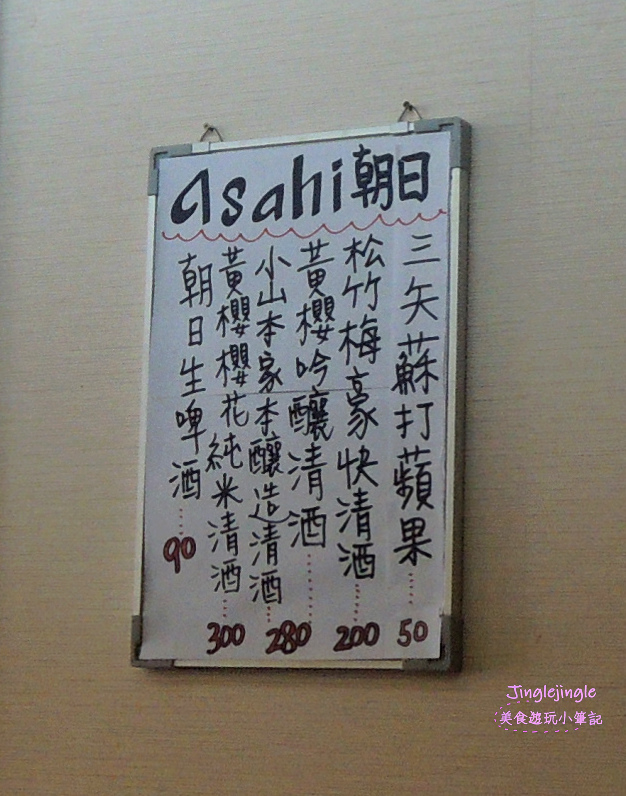 asahi朝日
三矢蘇打蘋果......50
松竹梅豪快清酒......200
黃櫻吟釀清酒.........
小山本家本釀造清酒...280
黃櫻櫻花純米清酒...300
朝日生啤酒.....90
Jinglejingle
美食遊玩小筆記